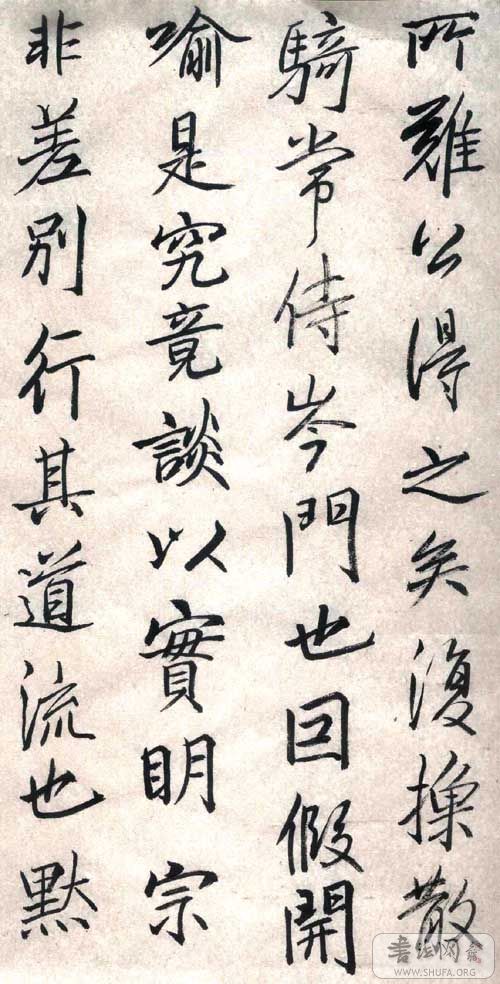 所難公得之矣復操散
騎常侍岑門也回假開
喻是究竟談以實明宗
非差別行其道流也點
书法网
WWW.SHUFA.ORG